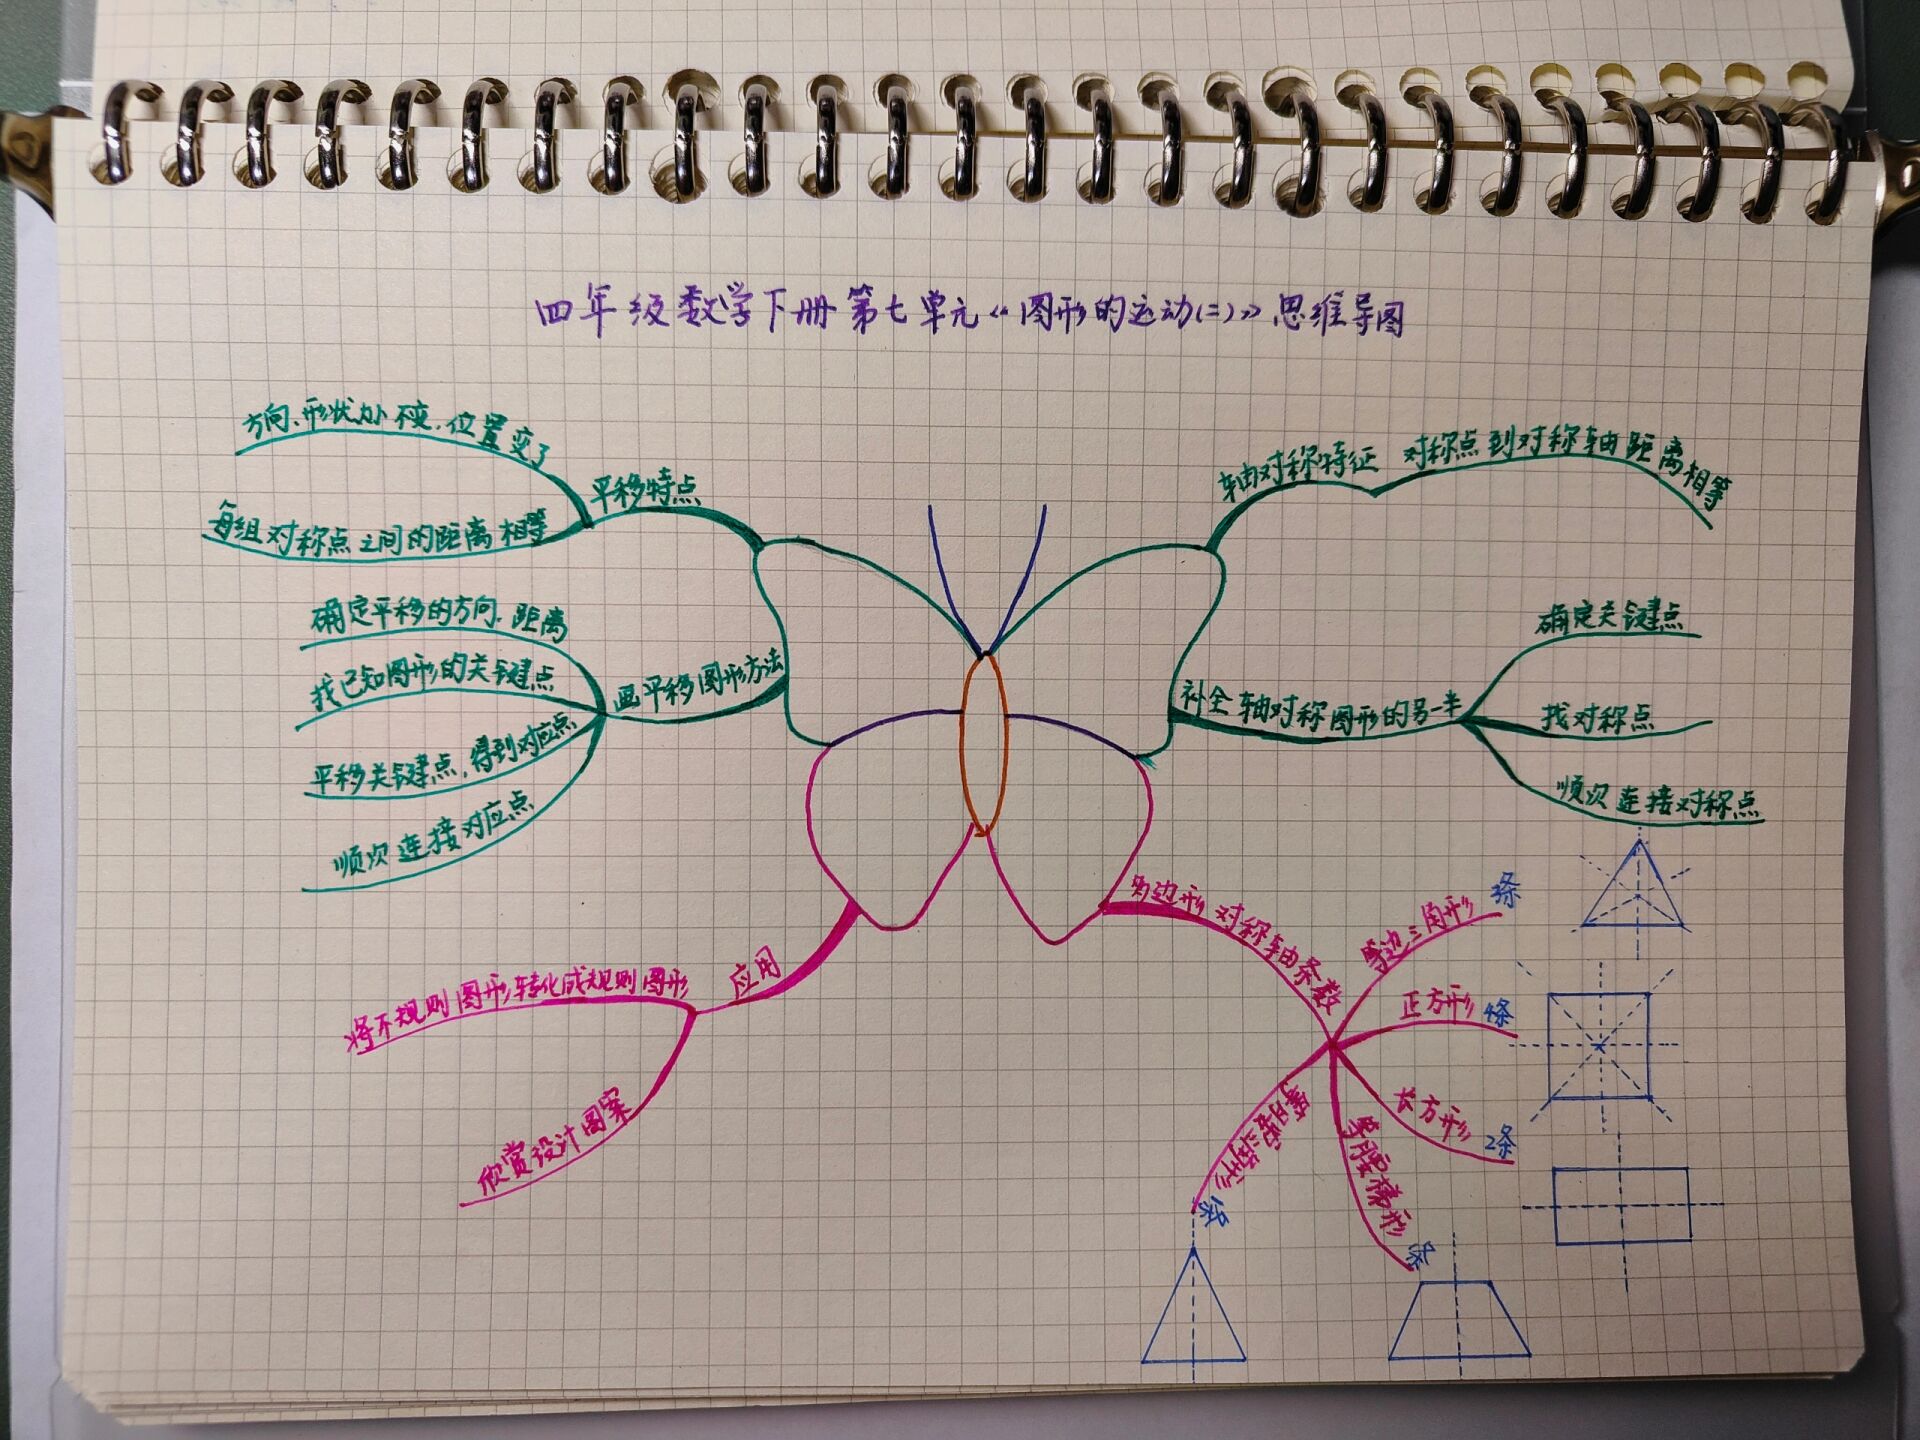 四年级数学下册第七单元《图形的运动(二)》思维导图
平移特点
方向、形状大小不变，位置变了
每组对称点之间的距离相等
画平移图形方法
确定平移的方向、距离
找已知图形的关键点
平移关键点，得到对应点
顺次连接对应点
应用
将不规则图形转化成规则图形
欣赏设计图案
轴对称特征
对称点到对称轴距离相等
补全轴对称图形的另一半
确定关键点
找对称点
顺次连接对称点
多边形对称轴条数
等边三角形 3条
正方形 4条
长方形 2条
等腰梯形 1条
等腰三角形 1条